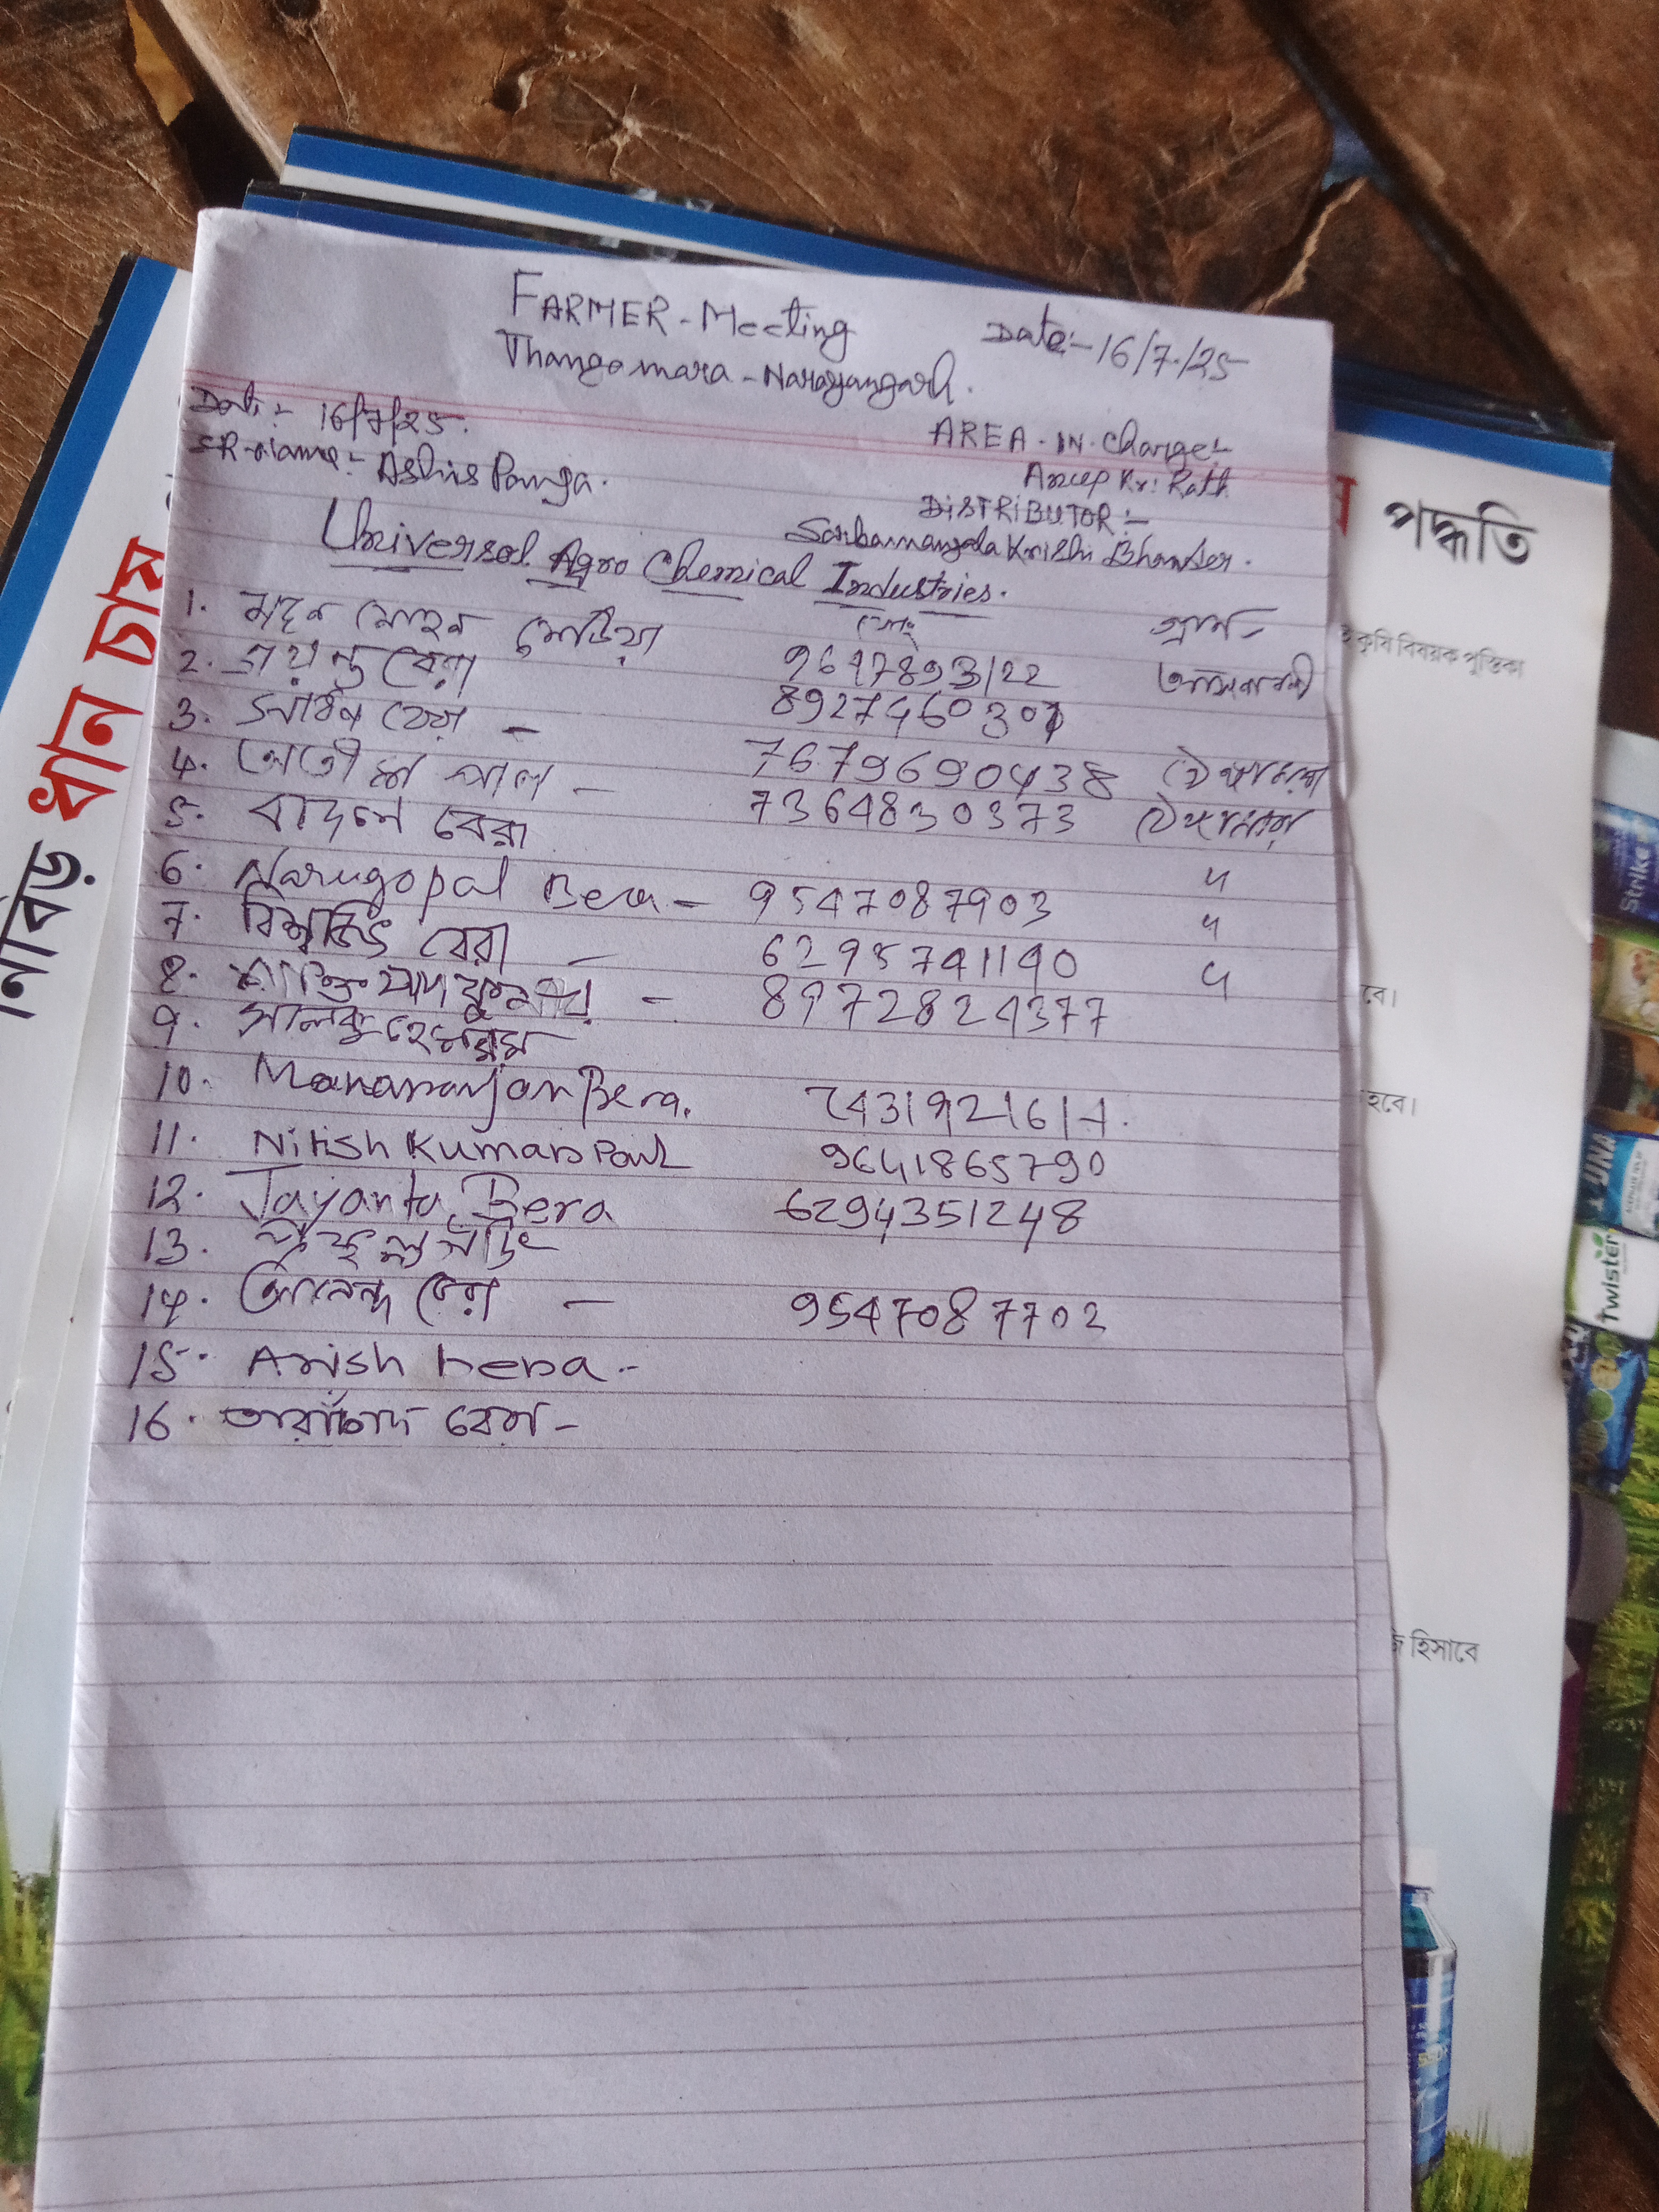 FARMER - Meeting
Date:- 16/7/25
Thangamara - Narayangarh.
Date:- 16/7/25.
SR-Name:- Ashis Panja.
AREA - IN - Charge:-
Anup Kr: Rath
DISTRIBUTOR:-
Sarbamangala Krishi Bhander.
Universal Agro Chemical Industries.
1. মদন মোহন
গ্রাম-
2. জয়ন্ত বেরা 9647893122
3. বেরা - 8927460301
4. পাল - 7679690438
5. বাদল বেরা 7364830373
6. Narugopal Bera - 9547087903 "
7. বিশ্বজিৎ বেরা - 6295741190 "
8. - 8972824377 "
9.
10. Manaranjan Bera. 7431921617.
11. Nitish Kumar Paul 9641865790
12. Jayanta Bera 6294351248
13.
14. আনন্দ বেরা - 9547087702
15. Anish bera -
16. তারাচাঁদ বেরা -
নিবিড় ধান চাষ
পদ্ধতি
কৃষি বিষয়ক পুস্তিকা
বে।
হবে।
হিসাবে
Strike
UNA
Twister